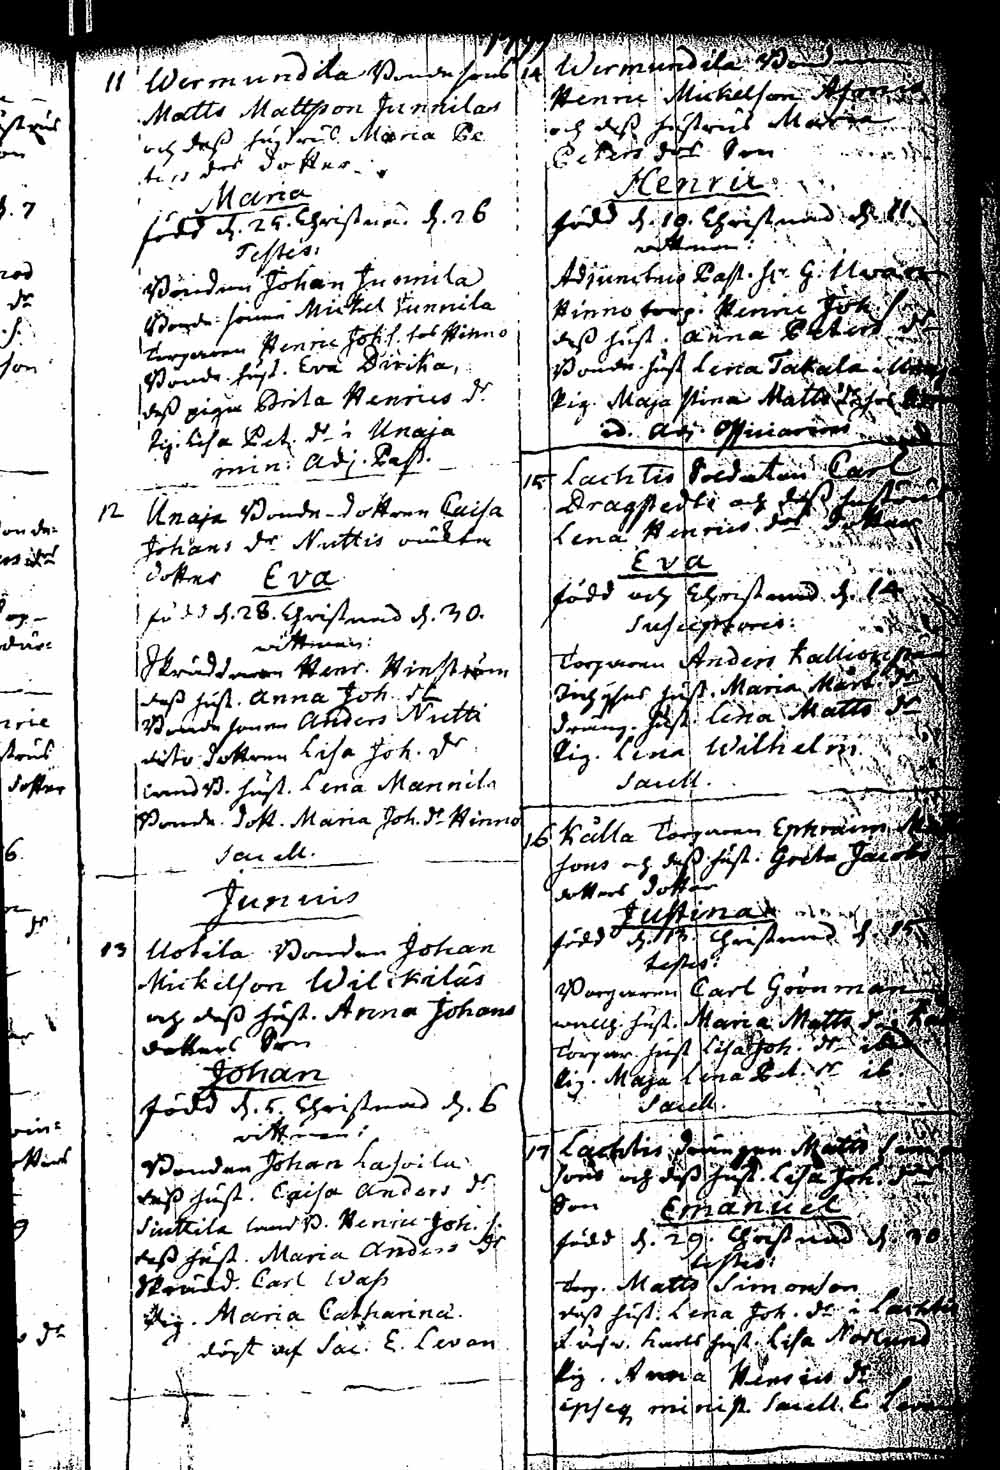 1799
11 Wermundila Bonde Sons
Matts Mattsson Junnilas
och dess hustrus Maria Pe
ters dr dotter
Maria
född d. 25. Christnad d. 26
Testes:
Bonden Johan Junnila
Bonde sonen Mickel Junnila
Torparen Henric Joh. s. Hinno
Bonde hust. Eva Dirika,
dess piga Brita Henrics dr
Pig. Lisa Pet. dr i Unaja
min: Adj. Past.
12 Unaja Bonde-dottren Caisa
Johans dr Nuttis oäckta
dotter Eva
född d. 28. Christnad d. 30.
vittnen:
Skräddaren Henr. Hinström
dess hust. Anna Joh. dr
Bonde sonen Anders Nutti
dito dottren Lisa Joh. dr
Land B. hust. Lena Mannila
Bonde dott. Maria Joh. dr Hinno
Sacell.
Junius
13 Uotila Bonden Johan
Mickelson Wilckilas
och dess hust. Anna Johans
dotters Son
Johan
född d. 5. Christnad d. 6
vittnen:
Bonden Johan Lassila
dess hust. Caisa Anders dr
Suttila Land B. Henric Joh. s.
dess hust. Maria Anders dr
Skrädd. Carl Wass
Pig. Maria Catharina.
döpt af Sac. E. Levan
14 Wermundila Bond
Henric Mickelson
och dess hustrus Maria
Peters dotters Son
Henric
född d. 10. Christnad d. 11
vittnen:
Adjunctus Past. Hr G.
Hinno torp. Henric Joh. s.
dess hust. Anna Peters dr
Bonde hust Lena Takala i Unaja
Pig. Maja Stina Matts dr
id. Adj. Officiarius
15 Lachtis Soldaten Carl
Dragstedts och dess hustrus
Lena Henrics dotters dotter
Eva
född och Christnad d. 14
Susceptores:
Torparen Anders Kallio
Inhyses hust. Maria Mårt. dr
dräng. hust. Lena Matts dr
Pig. Lena Wilhelm.
Sacell.
16 Källa Torparen Ephraim
sons och dess hust. Greta Jacobs
dotters dotter
Justina
född d. 13. Christnad d. 15
testes:
Torparen Carl Grönman
hust. Maria Matts dr
Torpar hust Lisa Joh. dr ibid
Pig. Maja Lena Pet. dr ib
Sacell.
17 Lachtis drängen Matts
sons och dess hust. Lisa Joh. drs
Son Emanuel
född d. 29. Christnad d. 30
testes:
Torp. Matts Simonson
dess hust. Lena Joh. dr i Lachtis
hust. Lisa Norlund
Pig. Anna Henrics dr
ipseq minist. Sacell. E. Levan